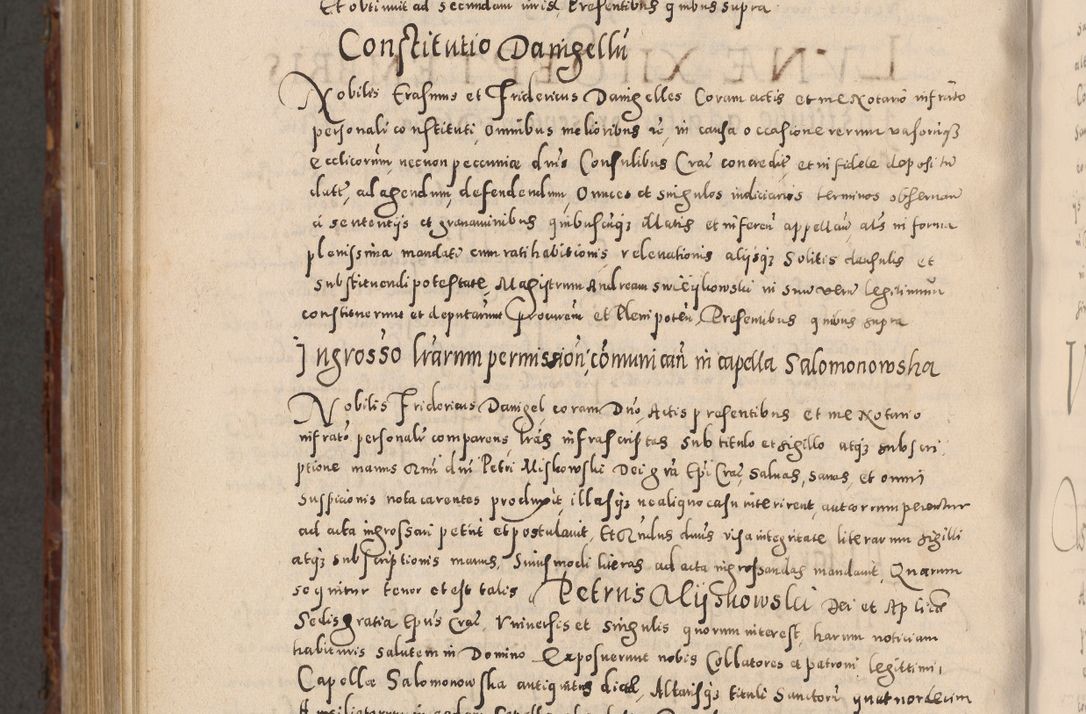 Et obtinuit ad secundam iuris, Presentibus quibus supra
Constitutio Danigellū
Nobilis Erasmus et Fridericus Danigelles Coram actis et me Notario infrato
personalī constituti, omnibus melioribus in causa occasione rerum vasorūqz
ecclīcorum, necnon peccuniæ dnīs Consulibus Crac concredit, et in fidele depositū
datt, ad agendum, defendendum, Omnes et singulos indiciarios terminos obseruan
á sententijs et grauaminibus quibuscūqz illatis et inferen appellan, als in forma
plenissima mandati cum ratihabitionis, relevationis alijsqz Solitis clausulis et
substituendi potestate, Magistrum Andream swieijkowski in suum verum legitimum
constituerunt et deputarunt procurem et Plenipoten, Presentibus quibus supra
Ingrosso lrārum permission, cōmunican in capella Salomonowska
Nobilis Fridericus Danigel coram Dno, Actis presentibus et me Notario
infrato, personalī comparens lrās infrascriptas sub titulo et sigillo atqz subscri,
ptione manus Rmi dni Petri Miskowski Dei grā Epi Crac, Saluas, sanas, et omni
suspicionis nota carentes produxit, illasqz ne aliquo casu interirent, aut corrumperentur
ad acta ingrossari petiit et postulauit, Et Rndus dnus visa integritate literarum sigilli
atqz subscriptionis manus, huiusmodi literas ad acta ingrossandas mandauit, Quarum
sequitur tenor et est talis Petrus Mijskowski Dei et Aplicæ
Sedis gratia Epus Crac, Vniuersis et singulis quorum interest, harum noticiam
habituris salutem in Domino Exposuerunt nobis Collatores et patroni legittimi,
Capellæ Salomonowska antiquitus dictæ, Altarisqz tituli Sanctorū quatuordecim